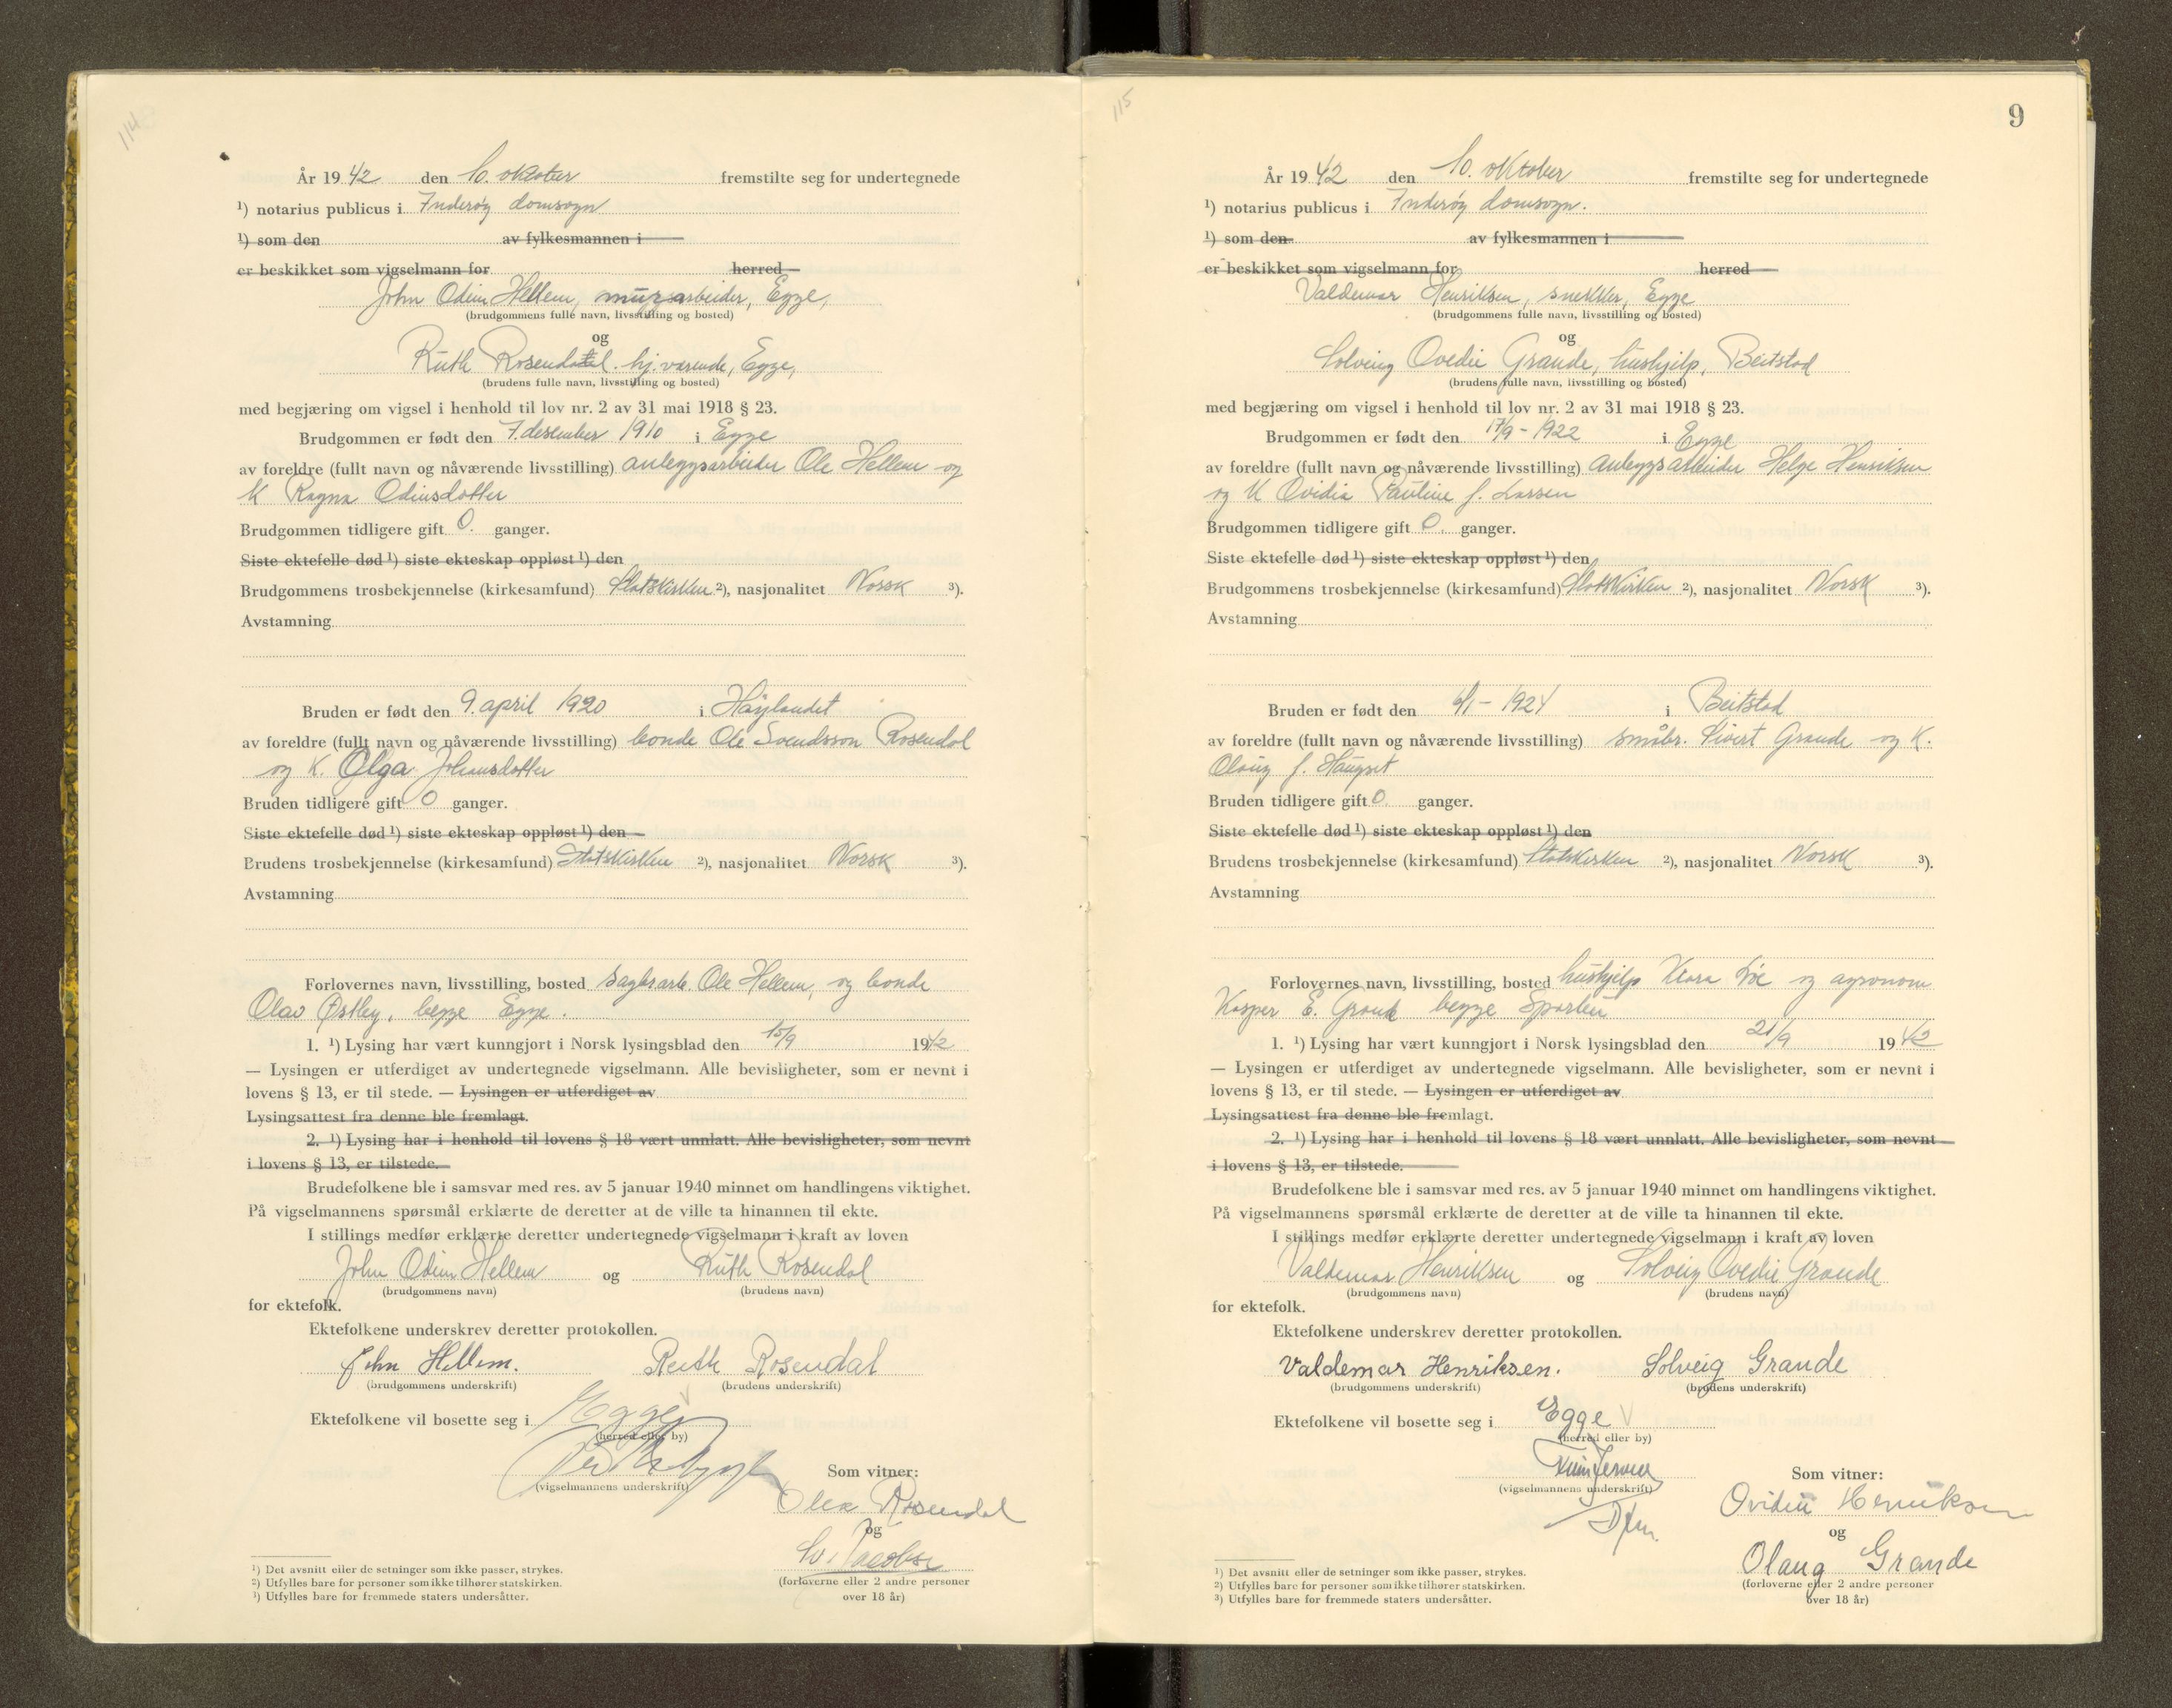 114
År 1942 den 10. oktober fremstilte seg for undertegnede
¹) notarius publicus i Inderøy domsogn
¹) som den av fylkesmannen i
er beskikket som vigselmann for herred
John Odin Hellem, murarbeider, Egge,
(brudgommens fulle navn, livsstilling og bosted)
og
Ruth Rosendal. hj. värende, Egge,
(brudens fulle navn, livsstilling og bosted)
med begjæring om vigsel i henhold til lov nr. 2 av 31 mai 1918 § 23.
Brudgommen er født den 7. desember 1910 i Egge
av foreldre (fullt navn og nåværende livsstilling) anleggsarbeider Ole Hellem og
K Ragna Odinsdotter
Brudgommen tidligere gift 0. ganger.
Siste ektefelle død ¹) siste ekteskap oppløst ¹) den
Brudgommens trosbekjennelse (kirkesamfund) Statskirken ²), nasjonalitet Norsk ³).
Avstamning
Bruden er født den 9. april 1920 i Høylandet
av foreldre (fullt navn og nåværende livsstilling) bonde Ole Svendsson Rosendal
og K. Olga Johansdotter
Bruden tidligere gift 0 ganger.
Siste ektefelle død ¹) siste ekteskap oppløst ¹) den
Brudens trosbekjennelse (kirkesamfund) Statskirken ²), nasjonalitet Norsk ³).
Avstamning
Forlovernes navn, livsstilling, bosted sagbr.arb. Ole Hellem, og bonde
Olav Østby, begge Egge.
1. ¹) Lysing har vært kunngjort i Norsk lysingsblad den 15/9 1942
— Lysingen er utferdiget av undertegnede vigselmann. Alle bevisligheter, som er nevnt i
lovens § 13, er til stede. — Lysingen er utferdiget av
Lysingsattest fra denne ble fremlagt.
2. ¹) Lysing har i henhold til lovens § 18 vært unnlatt. Alle bevisligheter, som nevnt
i lovens § 13, er tilstede.
Brudefolkene ble i samsvar med res. av 5 januar 1940 minnet om handlingens viktighet.
På vigselmannens spørsmål erklærte de deretter at de ville ta hinannen til ekte.
I stillings medfør erklærte deretter undertegnede vigselmann i kraft av loven
John Odin Hellem og Ruth Rosendal
(brudgommens navn) (brudens navn)
for ektefolk.
Ektefolkene underskrev deretter protokollen.
John Hellem. Ruth Rosendal
(brudgommens underskrift) (brudens underskrift)
Ektefolkene vil bosette seg i Egge
(herred eller by)
(vigselmannens underskrift) Som vitner:
Rosendal
og
Jacobsen
(forloverne eller 2 andre personer
over 18 år)
¹) Det avsnitt eller de setninger som ikke passer, strykes.
²) Utfylles bare for personer som ikke tilhører statskirken.
³) Utfylles bare for fremmede staters undersåtter.
115
9
År 1942 den 10. oktober fremstilte seg for undertegnede
¹) notarius publicus i Inderøy domsogn.
¹) som den av fylkesmannen i
er beskikket som vigselmann for herred
Valdemar Henriksen, snekker, Egge
(brudgommens fulle navn, livsstilling og bosted)
og
Solveig Ovedie Grande, hushjelp, Beitstad
(brudens fulle navn, livsstilling og bosted)
med begjæring om vigsel i henhold til lov nr. 2 av 31 mai 1918 § 23.
Brudgommen er født den 17/9 - 1922 i Egge
av foreldre (fullt navn og nåværende livsstilling) anleggsarbeider Helge Henriksen
og K Ovidia Pauline f. Larsen
Brudgommen tidligere gift 0. ganger.
Siste ektefelle død ¹) siste ekteskap oppløst ¹) den
Brudgommens trosbekjennelse (kirkesamfund) Statskirken ²), nasjonalitet Norsk ³).
Avstamning
Bruden er født den 6/1 - 1924 i Beitstad
av foreldre (fullt navn og nåværende livsstilling) småbr. Sivert Grande og K.
Olaug f. Haugset
Bruden tidligere gift 0. ganger.
Siste ektefelle død ¹) siste ekteskap oppløst ¹) den
Brudens trosbekjennelse (kirkesamfund) Statskirken ²), nasjonalitet Norsk ³).
Avstamning
Forlovernes navn, livsstilling, bosted hushjelp Klara og agronom
Kasper E. begge Sparbu
1. ¹) Lysing har vært kunngjort i Norsk lysingsblad den 21/9 1942
— Lysingen er utferdiget av undertegnede vigselmann. Alle bevisligheter, som er nevnt i
lovens § 13, er til stede. — Lysingen er utferdiget av
Lysingsattest fra denne ble fremlagt.
2. ¹) Lysing har i henhold til lovens § 18 vært unnlatt. Alle bevisligheter, som nevnt
i lovens § 13, er tilstede.
Brudefolkene ble i samsvar med res. av 5 januar 1940 minnet om handlingens viktighet.
På vigselmannens spørsmål erklærte de deretter at de ville ta hinannen til ekte.
I stillings medfør erklærte deretter undertegnede vigselmann i kraft av loven
Valdemar Henriksen og Solveig Ovedie Grande
(brudgommens navn) (brudens navn)
for ektefolk.
Ektefolkene underskrev deretter protokollen.
Valdemar Henriksen. Solveig Grande
(brudgommens underskrift) (brudens underskrift)
Ektefolkene vil bosette seg i Egge
(herred eller by)
(vigselmannens underskrift) Som vitner:
Ovidie Henriksen
og
Olaug Grande
(forloverne eller 2 andre personer
over 18 år)
¹) Det avsnitt eller de setninger som ikke passer, strykes.
²) Utfylles bare for personer som ikke tilhører statskirken.
³) Utfylles bare for fremmede staters undersåtter.